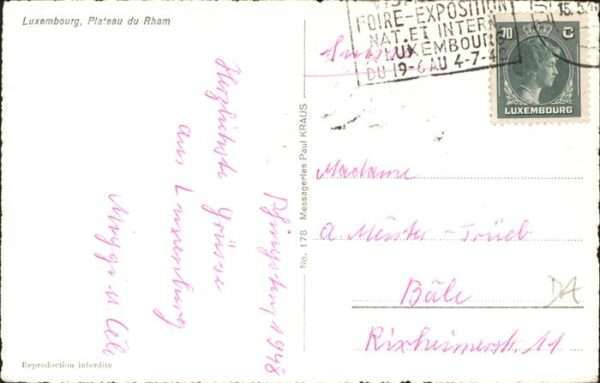 Luxembourg, Plateau du Rham
Pfingsten 1948
Herzlichste Grüsse
aus Luxemburg
Reproduction interdite
No. 178 Messageries Paul KRAUS
FOIRE-EXPOSITION
NAT. ET INTERN
LUXEMBOURG
DU 19-6 AU 4-7-4
70 C
LUXEMBOURG
Suisse
Madame
A. Meister-Trüeb
Bâle
Rixheimerstr. 11